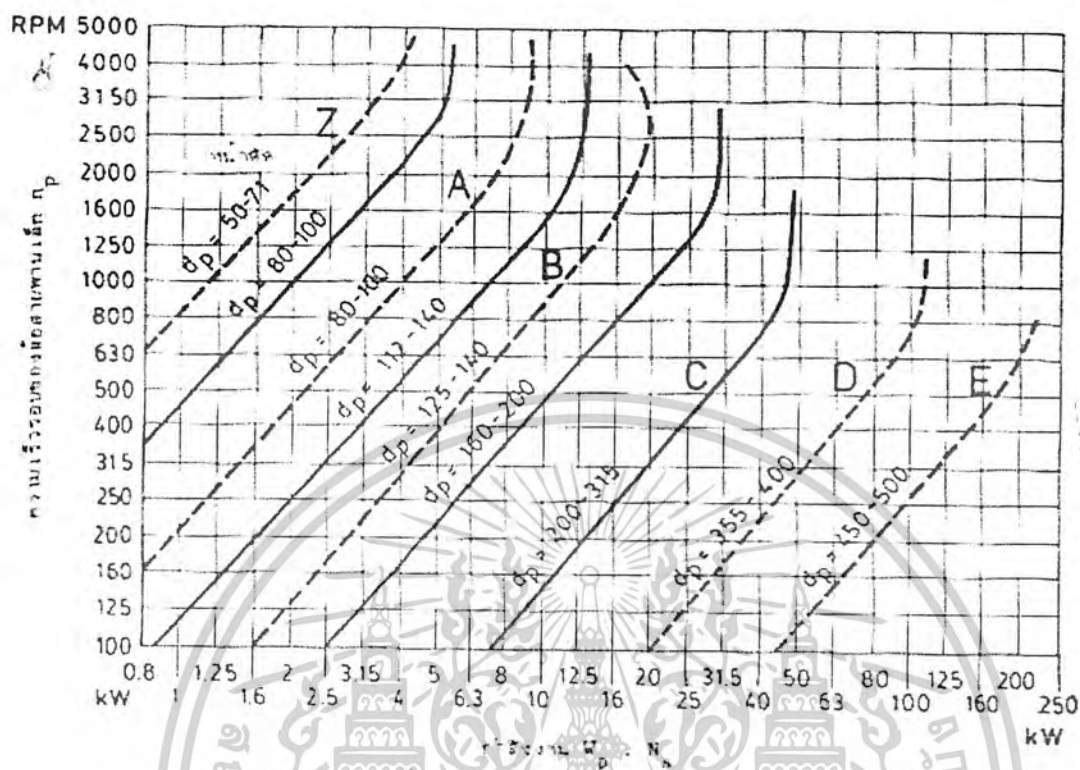 RPM 5000
4000
3150
2500
2000
1600
1250
1000
800
630
500
400
315
250
200
160
125
100
ความเร็วรอบของล้อสายพานเล็ก n_p
หน้าตัด
Z
A
B
C
D
E
d_p = 50-71
d_p = 80-100
d_p = 80-100
d_p = 112-140
d_p = 125-140
d_p = 160-200
d_p = 200-315
d_p = 355-400
d_p = 450-500
0.8 1 1.25 1.6 2 2.5 3.15 4 5 6.3 8 10 12.5 16 20 25 31.5 40 50 63 80 100 125 160 200 250
kW kW